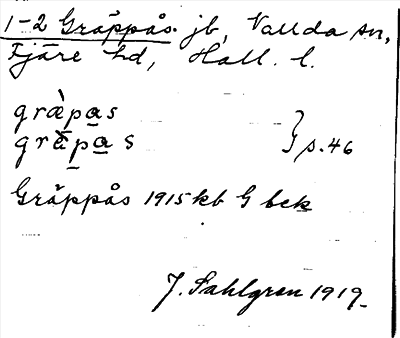 1-2 Gräppås. jb, Vallda sn,
Fjäre hd, Hall. l.
græ̀pa̱s
græ̀pa̱s } s. 46
Gräppås 1915 kb G bek
J. Sahlgren 1919